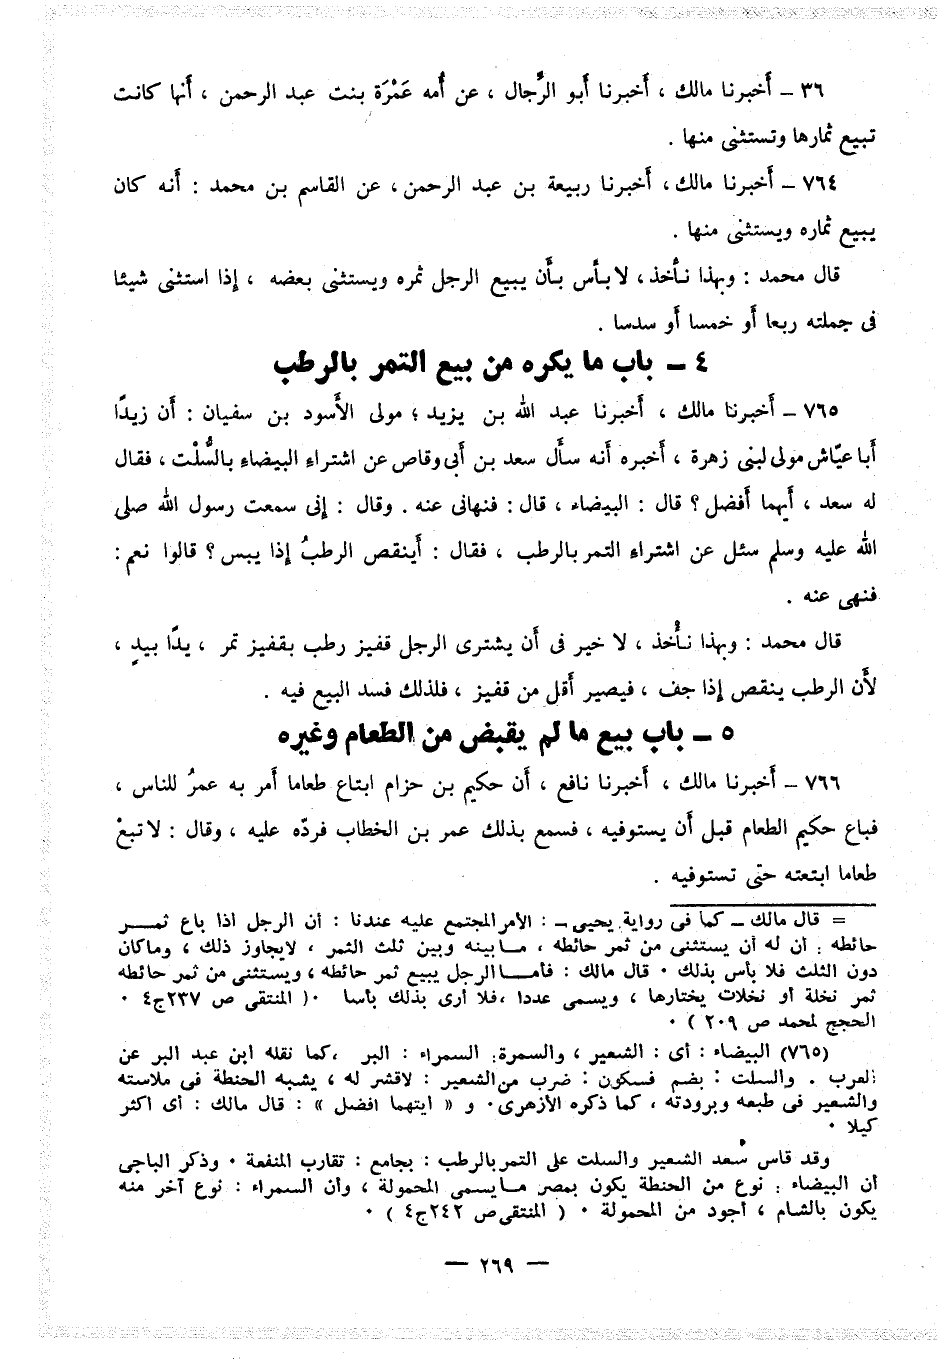 ٣٦ ــ أخبرنا مالك ، أخبرنا أبو الرِّجال ، عن أُمه عَمْرَة بنت عبد الرحمن ، أنها كانت
تبيع ثمارها وتستثنى منها .
٧٦٤ ــ أخبرنا مالك، أخبرنا ربيعة بن عبد الرحمن، عن القاسم بن محمد : أنه كان
يبيع ثماره ويستثنى منها .
قال محمد : وبهذا نـأخذ، لا بـأس بـأن يبيع الرجل ثمره ويستثنى بعضه ، إذا استثنى شيئا
فى جملته ربعا أو خمسا أو سدسا .
٤ ــ باب ما يكره من بيع التمر بالرطب
٧٦٥ ــ أخبرنا مالك ، أخبرنا عبد الله بن يزيد ؛ مولى الأسود بن سفيان : أن زيدًا
أبا عيّاش مولى لبنى زهرة ، أخبره أنه سأل سعد بن أبى وقاص عن اشتراء البيضاء بالسُّلْت ، فقال
له سعد ، أيهما أفضل ؟ قال : البيضاء ، قال : فنهانى عنه . وقال : إنى سمعت رسول الله صلى
الله عليه وسلم سئل عن اشتراء التمر بالرطب ، فقال : أينقص الرطبُ إذا يبس ؟ قالوا نعم :
فنهى عنه .
قال محمد : وبهذا نـأخُذ ، لا خير فى أن يشترى الرجل قفيز رطب بقفيز تمر ، يدًا بيدٍ ،
لأن الرطب ينقص إذا جف ، فيصير أقل من قفيز ، فلذلك فسد البيع فيه .
٥ ــ باب بيع ما لم يقبض من الطعام وغيره
٧٦٦ ــ أخبرنا مالك ، أخبرنا نافع ، أن حكيم بن حزام ابتاع طعاما أمر به عمرُ للناس ،
فباع حكيم الطعام قبل أن يستوفيه ، فسمع بذلك عمر بن الخطاب فردّه عليه ، وقال : لا تبعْ
طعاما ابتعته حتى تستوفيه .
= قال مالك ــ كما فى رواية يحيى ــ : الأمر المجتمع عليه عندنا : أن الرجل اذا باع ثمـــر
حائطه : أن له أن يستثنى من ثمر حائطه ، ما بينه وبين ثلث الثمر ، لايجاوز ذلك ، وماكان
دون الثلث فلا بأس بذلك ٠ قال مالك : فأمـــا الرجل يبيع ثمر حائطه ، ويستثنى من ثمر حائطه
ثمر نخلة أو نخلات يختارها ، ويسمى عددا ،فلا أرى بذلك بأسا ٠( المنتقى ص ٢٣٧ج٤ ٠
الحجج لمحمد ص ٢٠٩ ) ٠
(٧٦٥) البيضاء : أى : الشعير ، والسمرة: السمراء : البر ،كما نقله ابن عبد البر عن
العرب . والسلت : بضم فسكون : ضرب من الشعير : لاقشر له ، يشبه الحنطة فى ملاسته
والشعير فى طبعه وبرودته ، كما ذكره الأزهرى٠ و « ايتهما افضل » : قال مالك : أى اكثر
كيلا ٠
وقد قاس سعد الشعير والسلت على التمر بالرطب : بجامع : تقارب المنفعة ٠ وذكر الباجى
أن البيضاء : نوع من الحنطة يكون بمصر مـا يسمى المحمولة ، وأن السمراء : نوع آخر منه
يكون بالشام ، أجود من المحمولة ٠ ( المنتقى ص ٢٤٢ج٤ ) ٠
— ٢٦٩ —